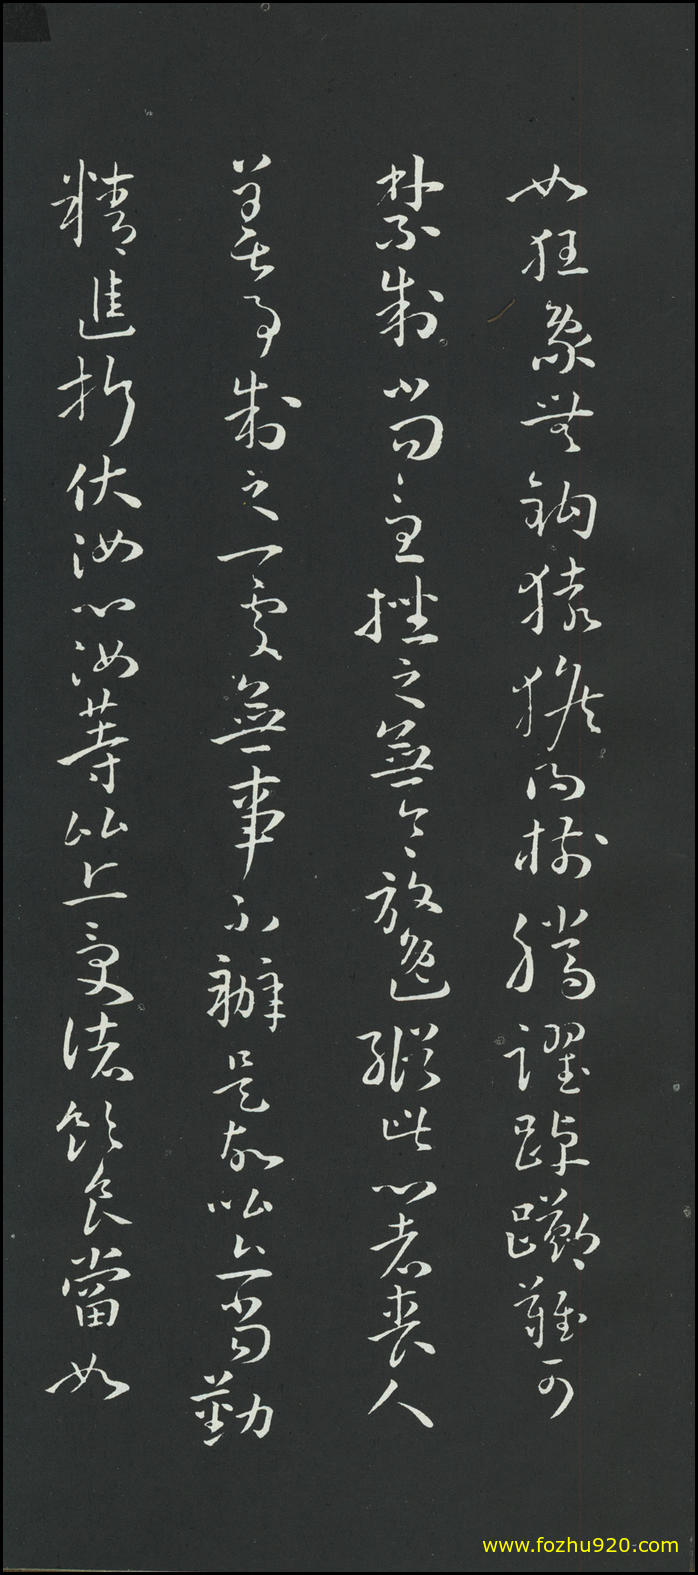 如狂象無鈎猿猴得樹騰躍踔躑難可
禁制當急挫之無令放逸縱此心者喪人
善事制之一處無事不辦是故比丘當勤
精進折伏汝心汝等比丘受諸飲食當如
www.fozhu920.com